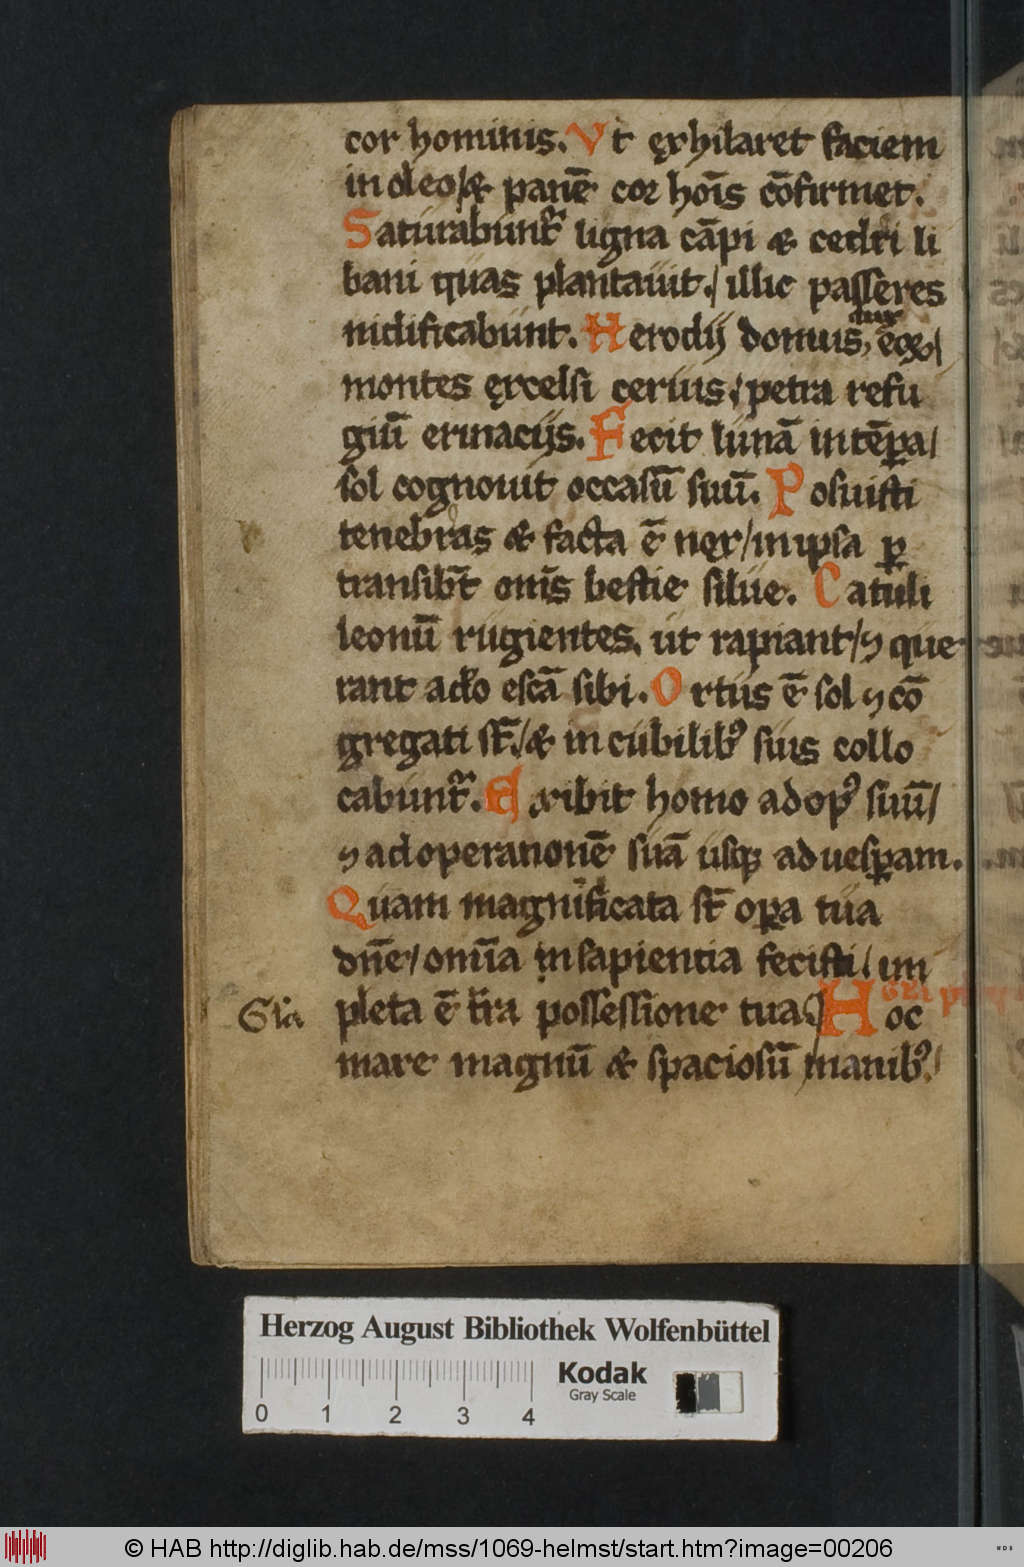 cor hominis. Ut ęxhilaret faciem
in oleo/ & panē cor hoīs cōfirmet.
Saturabunt᷑ ligna cāpi & cedri li
bani quas plantauit./ illic passeres
nidificabunt. Herodij domus, dux ē eoꝝ/
montes ęxcelsi ceruis./ petra refu
giū erinacijs. Fecit lunā in tēpꝑa/
sol cognouit occasū suū. Posuisti
tenebras & facta ē nęx/ in ipsa ꝑ
transibt̄ om̄s bestie silue. Catuli
leonū rugientes, ut rapiant/ ⁊ que
rant a do escā sibi. Ortus ē sol ⁊ cō
gregati st̄./ & in cubilibꝰ suis collo
cabunt᷑. Exibit homo ad opꝰ suū/
⁊ ad operationē suā usqꝫ ad uesꝑam.
Quam magnificata st̄ oꝑa tua
dn̄e/ om̄ia in sapientia fecisti/ im
Gl̄a pleta ē t̄ra possessione tua Hoc
mare magnū & spaciosū manibꝰ./
Herzog August Bibliothek Wolfenbüttel
Kodak
Gray Scale
0 1 2 3 4
© HAB http://diglib.hab.de/mss/1069-helmst/start.htm?image=00206